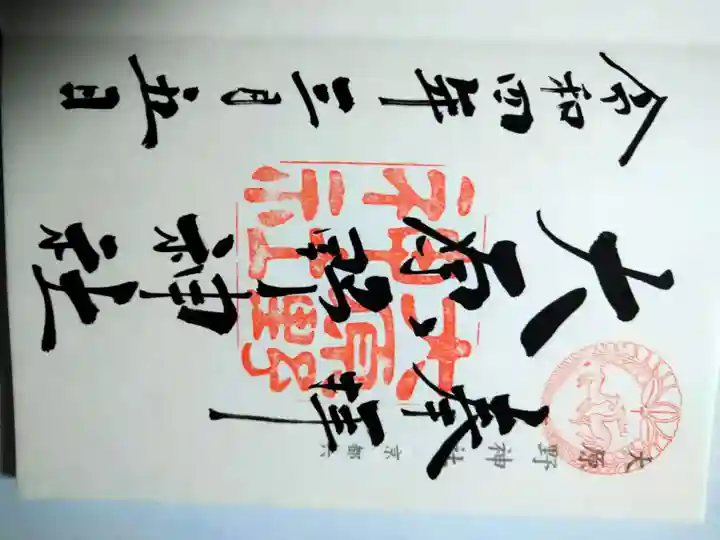 奉拝
大原野神社
京都
大原野神社
大原野
神社
令和四年三月五日